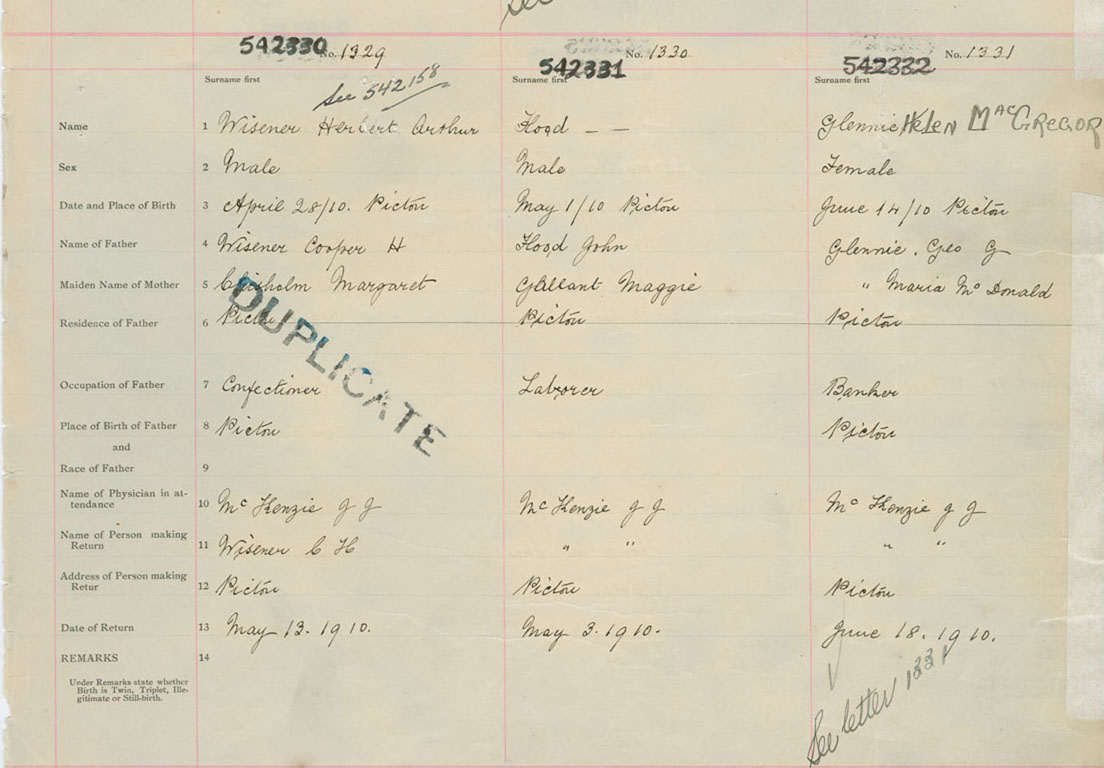 See
542330 No. 1329 542331 No. 1330 542332 No. 1331
Surname first Surname first Surname first
See 542158
Name 1 Wisener Herbert Arthur Hood – – Glennie Helen MacGregor
Sex 2 Male Male Female
Date and Place of Birth 3 April 28/10. Pictou May 1/10 Pictou June 14/10 Pictou
Name of Father 4 Wisener Cooper H Hood John Glennie. Geo G
Maiden Name of Mother 5 Chisholm Margaret Gallant Maggie " Maria Mc Donald
Residence of Father 6 Pictou Pictou Pictou
DUPLICATE
Occupation of Father 7 Confectioner Laborer Banker
Place of Birth of Father 8 Pictou Pictou
and
Race of Father 9
Name of Physician in at-
tendance 10 Mc Kenzie J J Mc Kenzie J J Mc Kenzie J J
Name of Person making
Return 11 Wisener C H " " " "
Address of Person making
Retur 12 Pictou Pictou Pictou
Date of Return 13 May 13. 1910. May 3. 1910. June 18. 1910.
REMARKS 14
Under Remarks state whether
Birth is Twin, Triplet, Ille-
gitimate or Still-birth.
See letter 1331